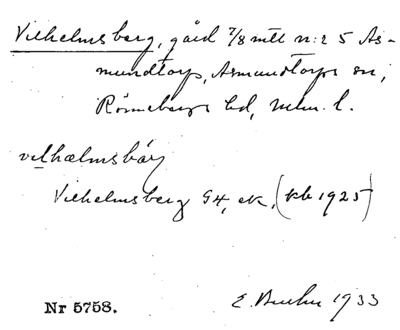 Vilhelmsberg, gård 7/8 mtl n:r 5 As-
mundtorp, Asmundtorps sn,
Rönnebergs hd, Mlm. l.
vılhælmsbárj
Vilhelmsberg G4, ek, (kb 1925)
Nr 5758. E. 1933